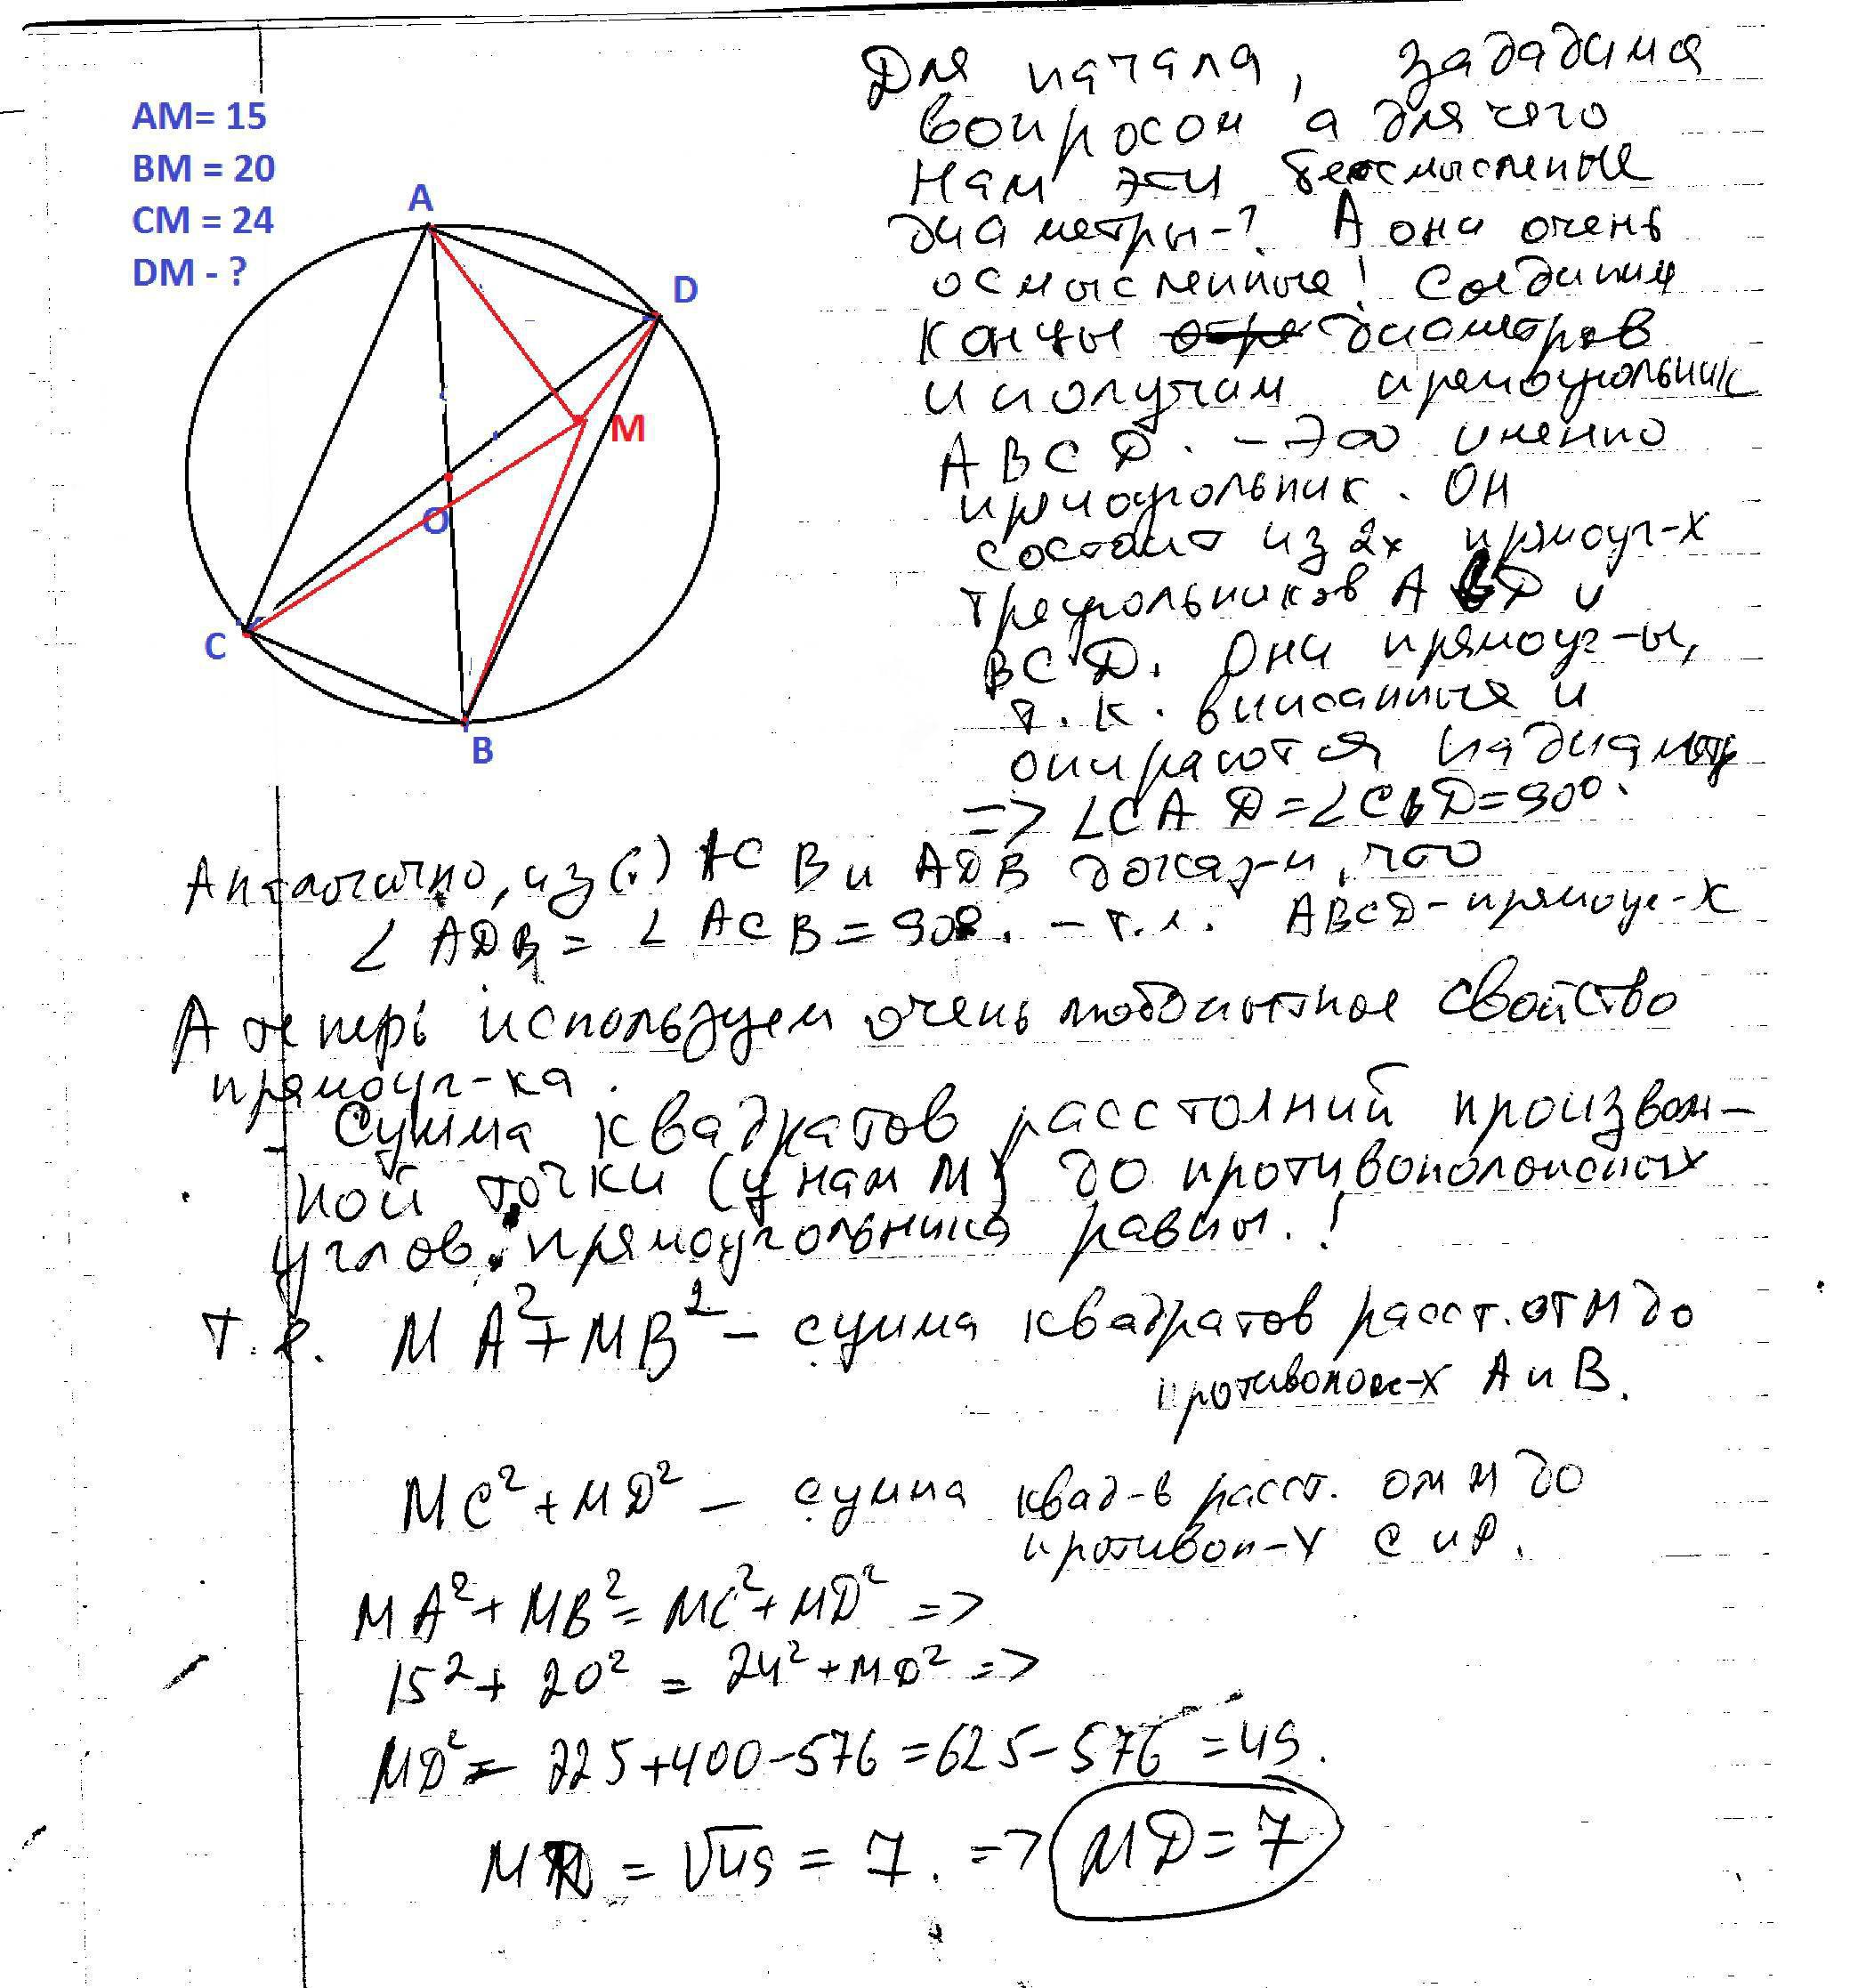 AM= 15
BM = 20
CM = 24
DM - ?
A
D
M
O
C
B
Для начала, зададимся
вопросом а для чего
нам эти бессмысленные
диаметры-? А они очень
осмысленные! Соединим
концы диаметров
и получим прямоугольник
ABCD. - Это именно
прямоугольник. Он
состоит из 2х прямоуг-х
треугольников и
BCD. Они прямоуг-ы,
т.к. вписанные и
опираются на диаметр
=> ∠CAD=∠CBD=90°.
Аналогично, из ACB и ADB докаж-м, что
∠ADB = ∠ACB = 90°. - т.е. ABCD-прямоуг-к
А теперь используем очень любопытное свойство
прямоуг-ка.
- Сумма квадратов расстояний произволь-
ной точки (у нам M) до противоположных
углов прямоугольника равны.!
т.е. MA²+MB² - сумма квадратов расст. от M до
противопол-х A и B.
MC²+MD² - сумма квад-в расст. от M до
противоп-х C и D.
MA²+MB²=MC²+MD² =>
15²+20² = 24²+MD² =>
MD²= 225+400-576=625-576=49.
MD = √49 = 7. => MD=7